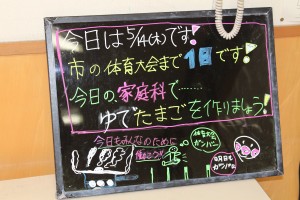 今日は5/14(木)です!
市の体育大会まで1日です!
今日の家庭科で……
ゆでたまごを作りましょう!
今日もみんなのために
体育大会
ガンバー
明日も